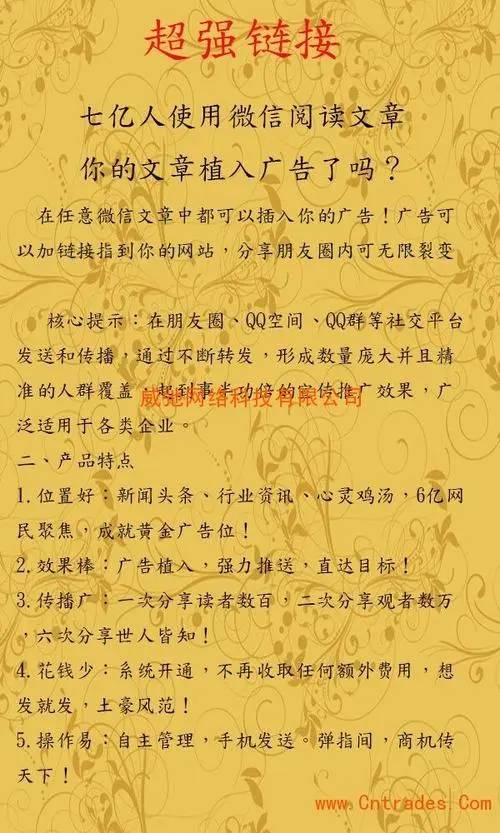 超强链接
七亿人使用微信阅读文章
你的文章植入广告了吗？
在任意微信文章中都可以插入你的广告！广告可
以加链接指到你的网站，分享朋友圈内可无限裂变
核心提示：在朋友圈、QQ空间、QQ群等社交平台
发送和传播，通过不断转发，形成数量庞大并且精
准的人群覆盖，起到事半功倍的宣传推广效果，广
威驰网络科技有限公司
泛适用于各类企业。
二、产品特点
1.位置好：新闻头条、行业资讯、心灵鸡汤，6亿网
民聚焦，成就黄金广告位！
2.效果棒：广告植入，强力推送，直达目标！
3.传播广：一次分享读者数百，二次分享观者数万
，六次分享世人皆知！
4.花钱少：系统开通，不再收取任何额外费用，想
发就发，土豪风范！
5.操作易：自主管理，手机发送。弹指间，商机传
天下！
www.Cntrades.Com